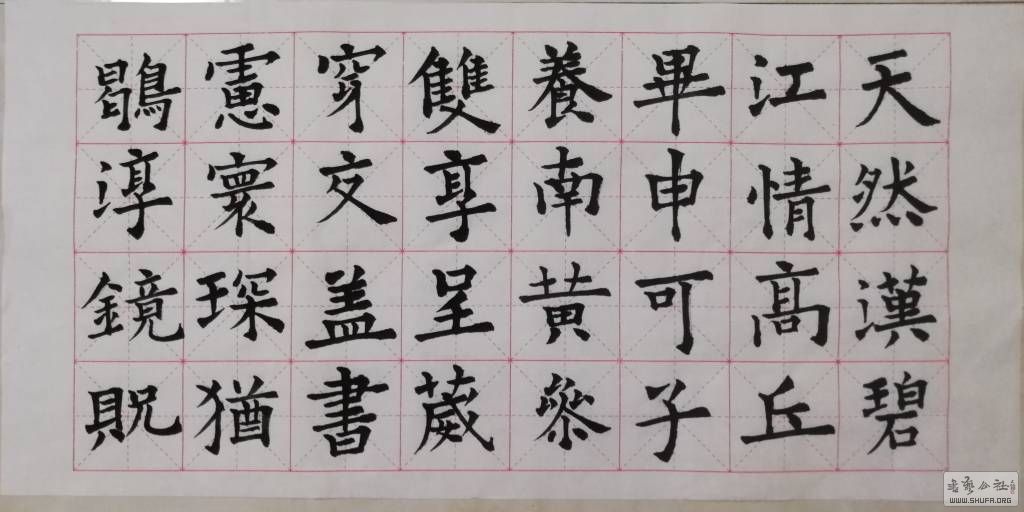 天然漢碧
江情髙丘
畢申可子
養南黄
雙享呈葳
穿文盖書
寰琛猶
鶡淳鏡貺
书艺公社
WWW.SHUFA.ORG